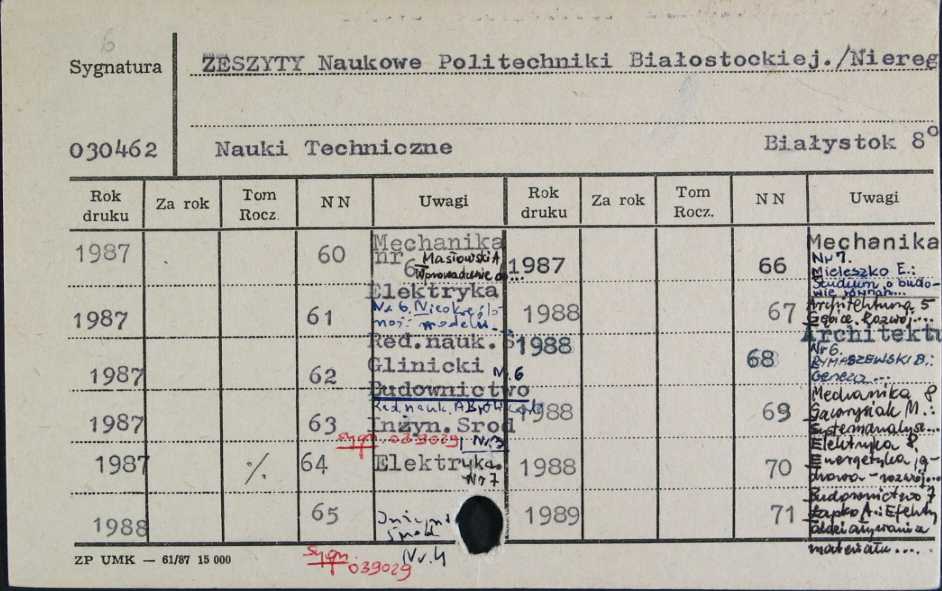 6
Sygnatura
ZESZYTY Naukowe Politechniki Białostockiej./Niereg
030462
Nauki Techniczne
Białystok 8°
Rok druku Za rok Tom Rocz. NN Uwagi Rok druku Za rok Tom Rocz. NN Uwagi
1987 60 Mechanika nr 6 Masłowski A Wprowadzenie do... 1987 66 Mechanika Nr 7. Mieleszko E.: Studium o budowie równań...
1987 61 Elektryka Nr 6, Nieokreślo- ność modelu.. 1988 67 Architektura 5 Gębice. Rozwój...
1987 62 Red.nauk. S Glinicki Nr. 6 1988 68 Architektu Nr 6. RYMASZEWSKI B.: Geneza ...
1987 63 Budownictwo Red. nauk. 1988 69 Mechanika 8 M.:
Inżyn.Srod Nr 3
sygn 039029
1987 % 64 Elektryka. Nr 7 1988 70 Elektryka 8, Energetyka, rozwój...
1988 65 Inżyn. środ. Nr. 4 1989 71 Budownictwo 7 Łapko A.: Efekty oddziaływania materiału....
ZP UMK — 61/87 15 000
sygn. 039029